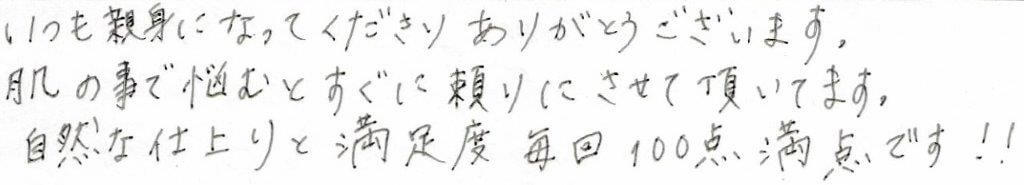 いつも親身になってくださり ありがとうございます。
肌の事で悩むとすぐに頼りにさせて頂いてます。
自然な仕上りと満足度 毎回100点満点です!!